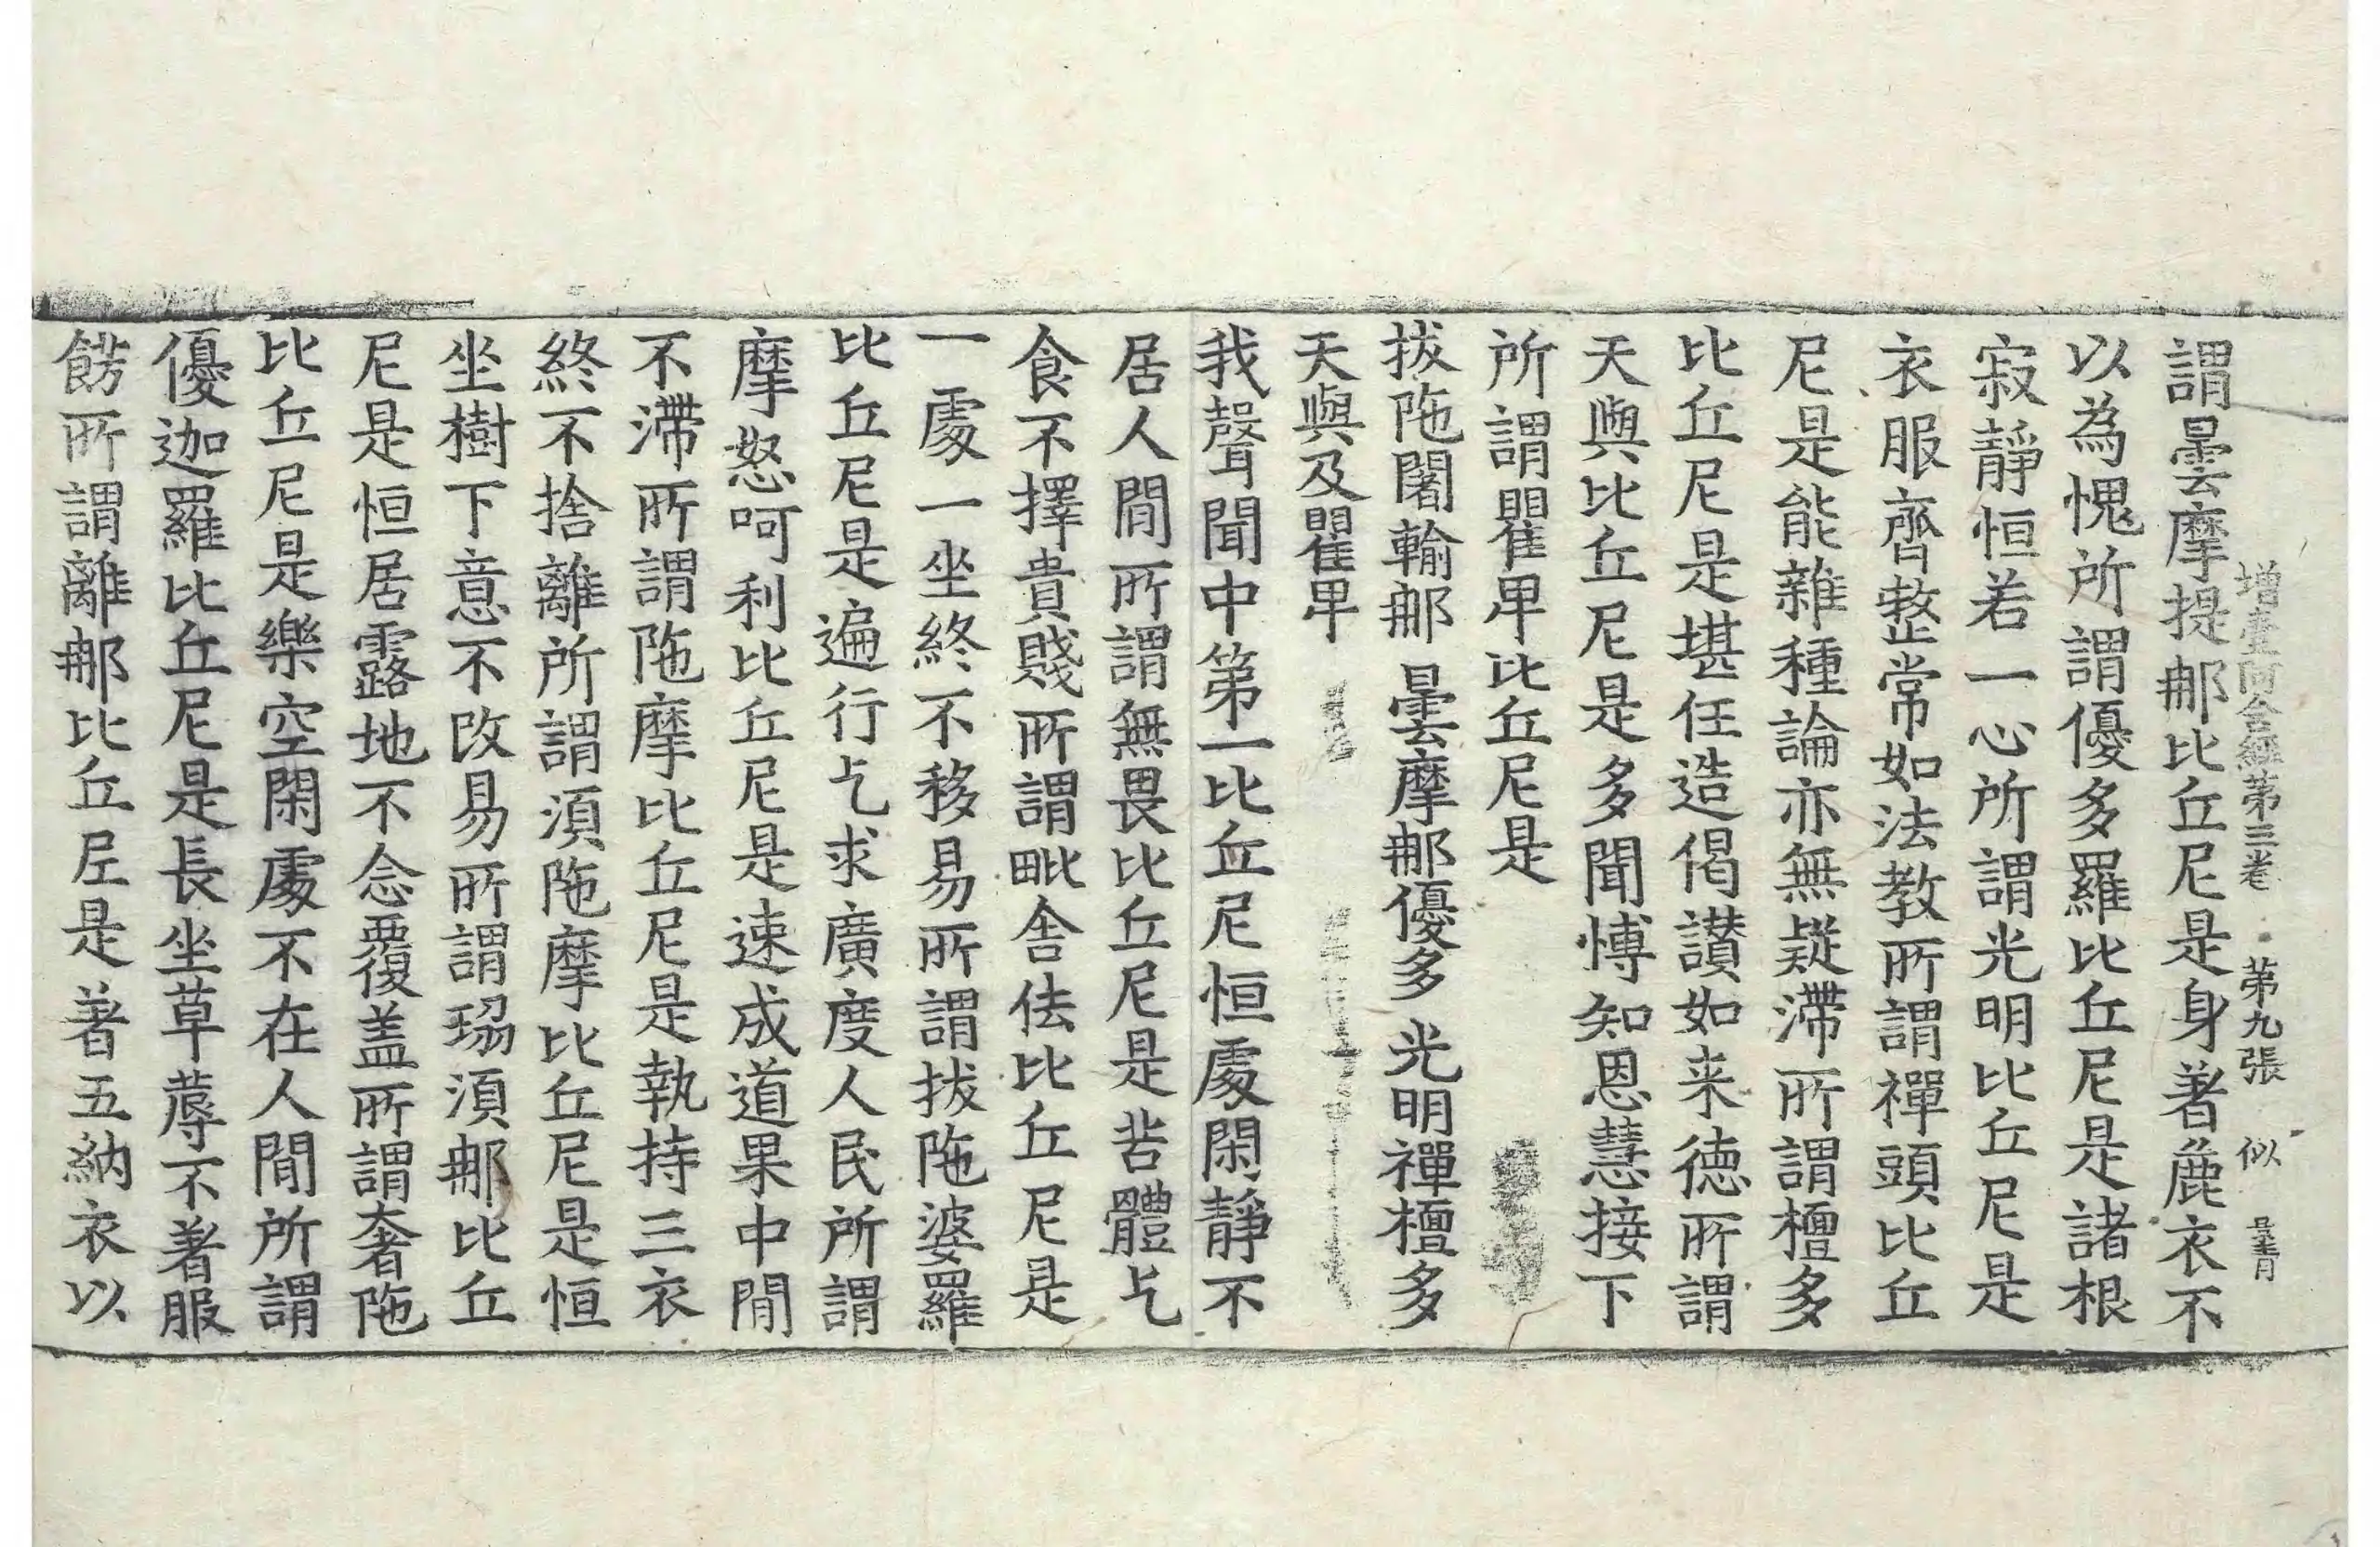 增壹阿含經第三卷 第九張 似
謂曇摩提那比丘尼是身著麁衣不
以為愧所謂優多羅比丘尼是諸根
寂靜恒若一心所謂光明比丘尼是
衣服齊整常如法教所謂禪頭比丘
尼是能雜種論亦無疑滯所謂檀多
比丘尼是堪任造偈讚如来德所謂
天與比丘尼是多聞博知恩慧接下
所謂瞿卑比丘尼是
拔陁闍輸那 曇摩那優多 光明禪檀多
天與及瞿卑
我聲聞中第一比丘尼恒處閑靜不
居人間所謂無畏比丘尼是苦體乞
食不擇貴賤所謂毗舍佉比丘尼是
一處一坐終不移易所謂拔陁婆羅
比丘尼是遍行乞求廣度人民所謂
摩怒呵利比丘尼是速成道果中間
不滯所謂陁摩比丘尼是執持三衣
終不捨離所謂湏陁摩比丘尼是恒
坐樹下意不改易所謂珕湏那比丘
尼是恒居露地不念覆盖所謂奢陁
比丘尼是樂空閑處不在人間所謂
優迦羅比丘尼是長坐草蓐不著服
餝所謂離那比丘尼是著五納衣以